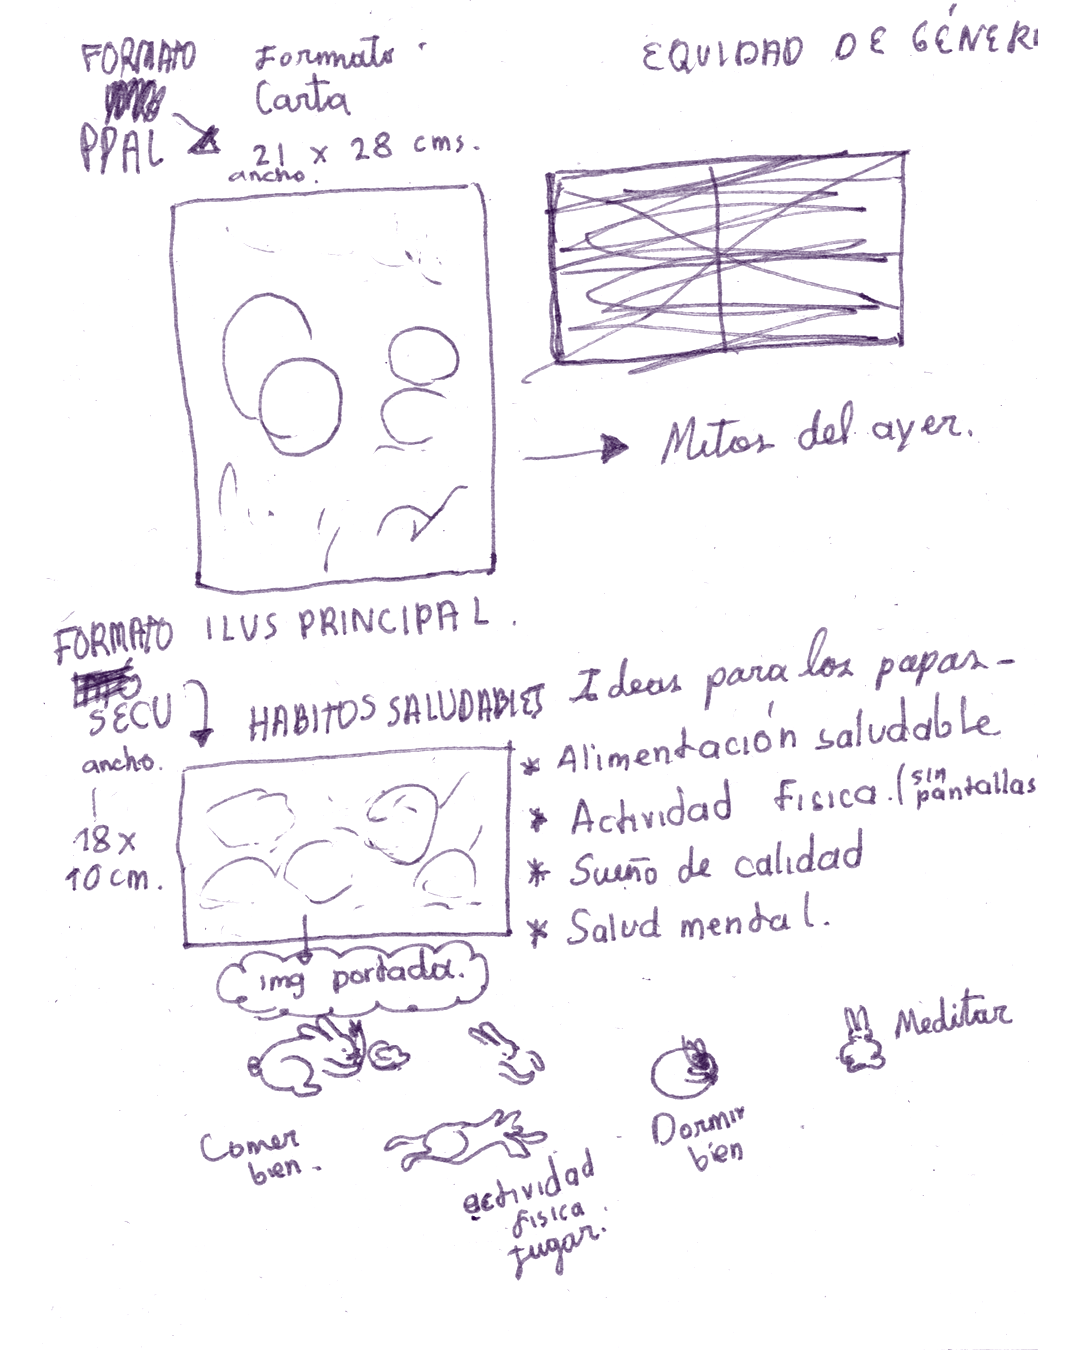 FORMATO
PPAL
Formato
Carta
21 x 28 cms.
ancho.
EQUIDAD DE GÉNER
Mitos del ayer.
ILUS PRINCIPAL.
FORMATO
SECU
ancho.
18 x
10 cm.
HABITOS SALUDABLES
Ideas para los papas-
* Alimentación saludable
* Actividad Fisica. (sin pantallas
* Sueño de calidad
* Salud mental.
img portada.
Meditar
Comer
bien.
actividad
fisica
jugar.
Dormir
bien